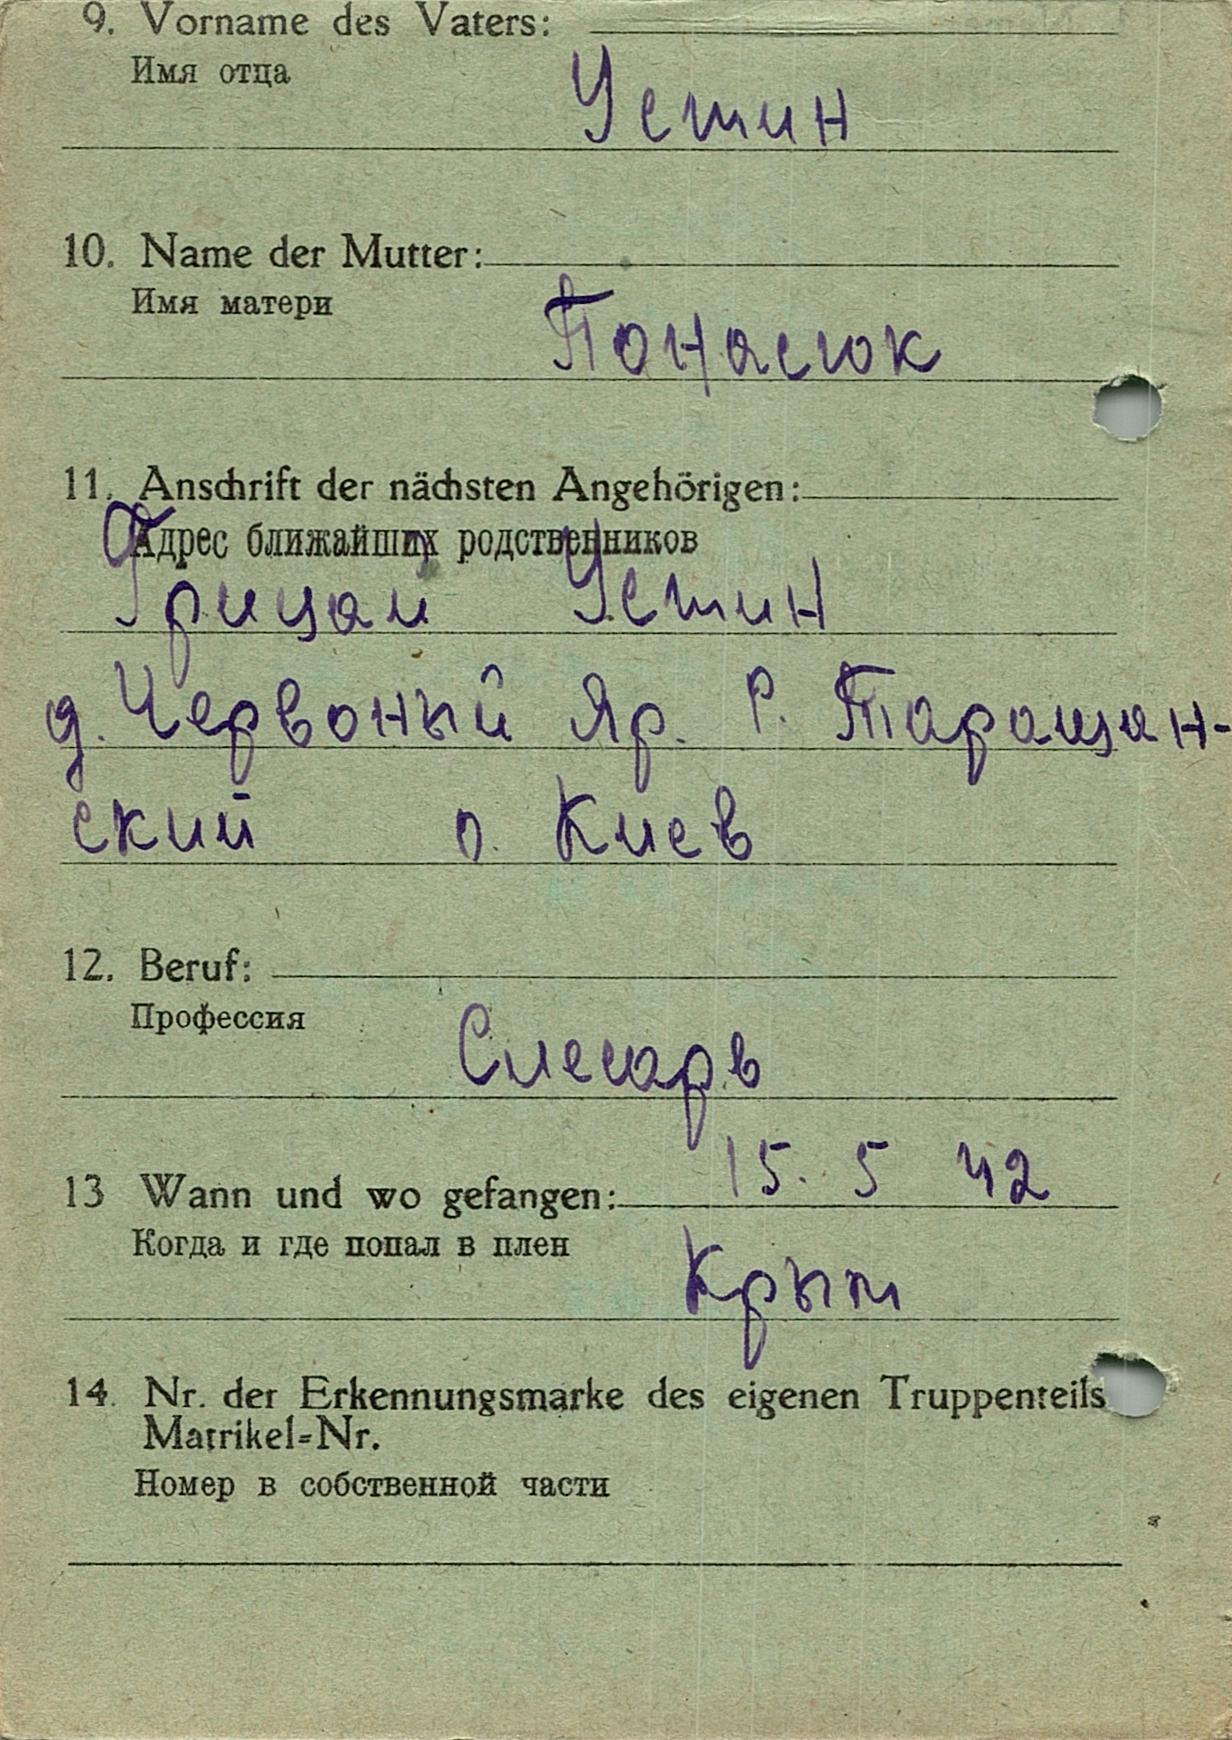 9. Vorname des Vaters:
Имя отца
Устин
10. Name der Mutter:
Имя матери
Понасюк
11. Anschrift der nächsten Angehörigen:
Адрес ближайших родственников
Грицай Устин
д. Червоный Яр. Р. Таращан-
ский о. Киев
12. Beruf:
Профессия
Слесарь
15. 5 42
13 Wann und wo gefangen:
Когда и где попал в плен
Крым
14. Nr. der Erkennungsmarke des eigenen Truppenteils
Matrikel=Nr.
Номер в собственной части